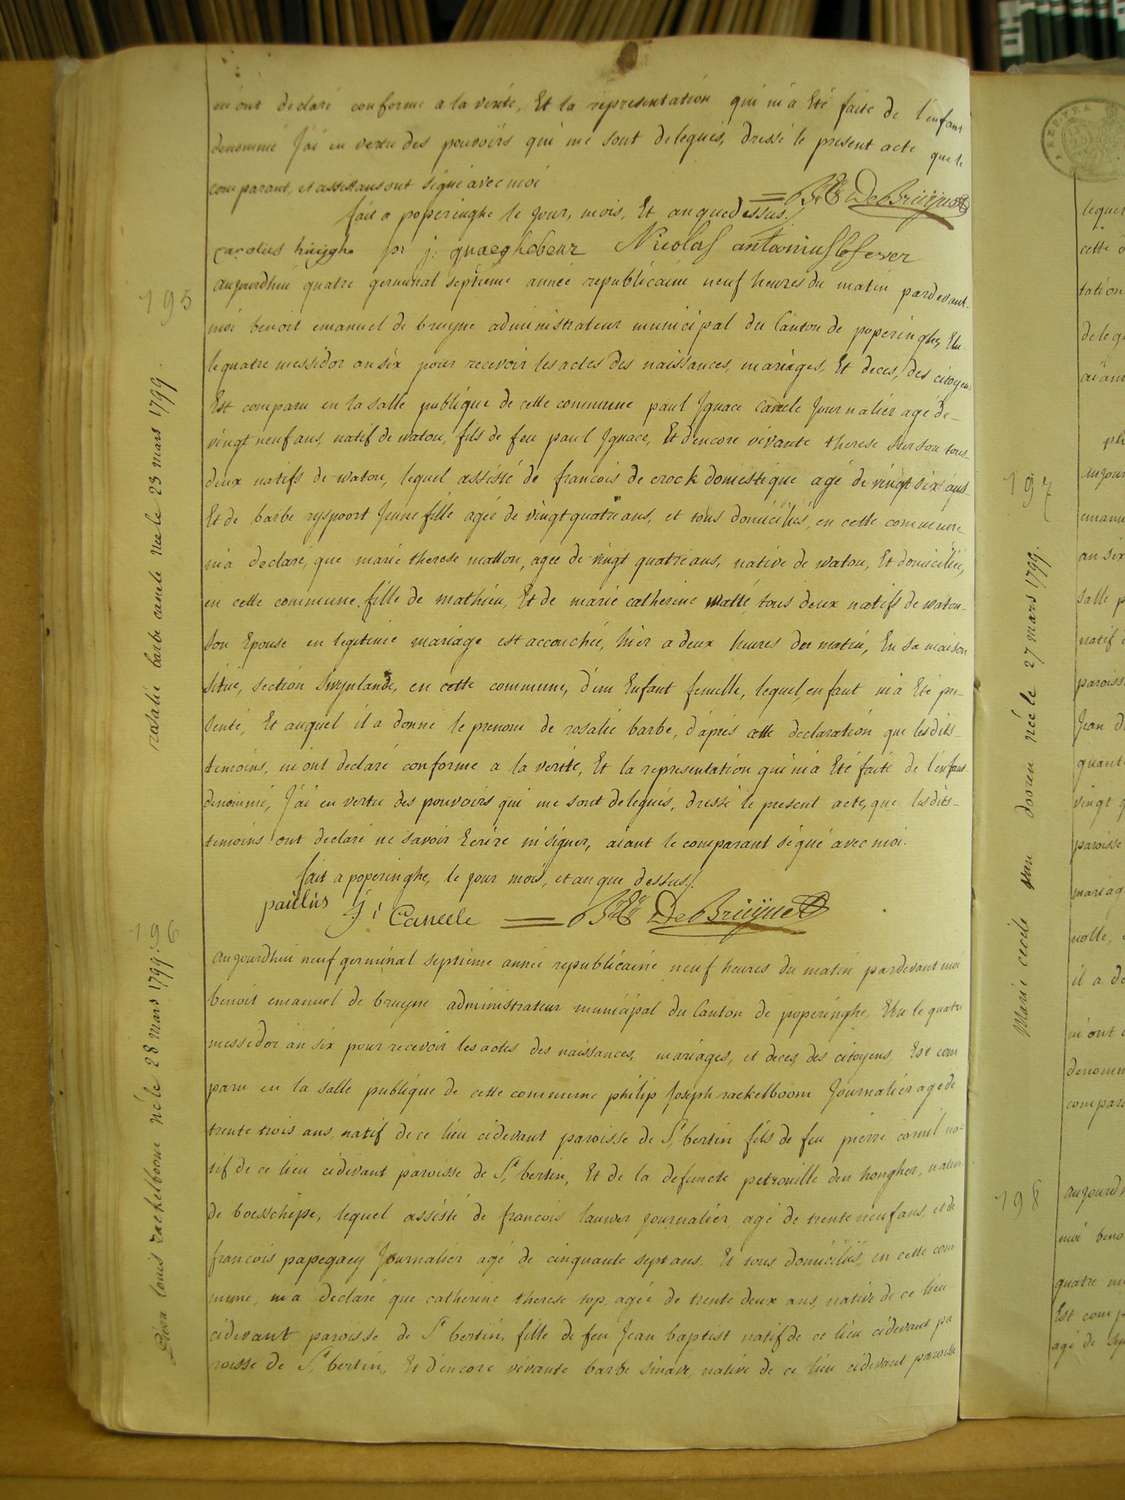 m'ont declaré conforme a la verité, Et la representation qui m'a Eté faite de l'enfant
denommé J'ai en vertu des pouvoirs qui me sont delegués, dressé le present acte que le
comparant, et assistans ont signé avec moi
fait a poperinghe le jour, mois, Et an que dessus.
De Bruÿne
Carolus j: quaeghebeur Nicolas antoonius
195
rosalie barbe canele née le 23 mars 1799.
aujourdhui quatre germinal septieme année republicaine neuf heures du matin pardevant
moi benoit emanuel de bruyne administrateur municipal du Canton de poperinghe, Elu
le quatre messidor an six pour recevoir les actes des naissances, mariages, Et deces, des citoyens
Est comparu en la salle publique de cette commune paul Ignace Canele Journalier agé de
vingt neuf ans, natif de watou, fils de feu paul Ignace, Et d'encore vivante therese tous
deux natifs de watou, lequel assisté de francois de crock domestique agé de vingt six ans
Et de barbe ryspoort Jeune fille agée de vingt quatre ans, et tous domiciliés en cette commune
m'a declaré, que marie therese mallou, agée de vingt quatre ans, native de watou, Et domiciliée,
en cette commune, fille de mathieu, Et de marie catherine tous deux natifs de watou
son Epouse en legitime mariage est accouchée, hier a deux heures du matin, En sa maison
située, section Swynlande, en cette commune, d'un Enfant femelle, lequel enfant m'a Eté pre-
senté, Et auquel il a donné le prenom de rosalie barbe, d'après cette declaration que lesdits
temoins, m'ont declaré conforme a la verité, Et la representation qui m'a Eté faite de l'enfant
denommé, J'ai en vertu des pouvoirs qui me sont delegués, dressé le present acte, que lesdits
temoins ont declaré ne savoir Ecrire ni signer, aiant le comparant signé avec moi.
fait a poperinghe, le jour mois, et an que dessus.
paulus J: Canele De Bruÿne
196
louis rackelboom né le 28 mars 1799.
aujourdhui neuf germinal septieme année republicaine neuf heures du matin pardevant moi
benoit emanuel de bruyne administrateur municipal du Canton de poperinghe, Elu le quatre
messidor an six pour recevoir les actes des naissances, mariages, et deces, des citoyens, Est com
paru en la salle publique de cette commune philip Joseph rackelboom Journalier agé de
trente trois ans, natif de ce lieu cidevant paroisse de St bertin fils de feu pierre cornil na-
tif de ce lieu cidevant paroisse de St bertin, Et de la defuncte petronille den hongher, native
de boesschepe, lequel assisté de francois lauwer journalier, agé de trente neuf ans, et de
francois papegaey Journalier agé de cinquante sept ans. Et tous domiciliés, en cette com
mune, m'a declaré que catherine therese top, agée de trente deux ans, native de ce lieu
cidevant paroisse de St bertin, fille de feu Jean baptist natif de ce lieu cidevant pa
roisse de St bertin, Et d'encore vivante barbe native de ce lieu cidevant paroisse
197
Marie cecile van dooren née le 27 mars 1799.
198
lequel
cette
tation
deleg
aujour
emanu
an six
salle p
natif
paroiss
Jean d
quant
vingt
paroisse
mariag
il a de
m'ont
denomm
compara
aujourd
moi beno
quatre m
Est comp
agé de